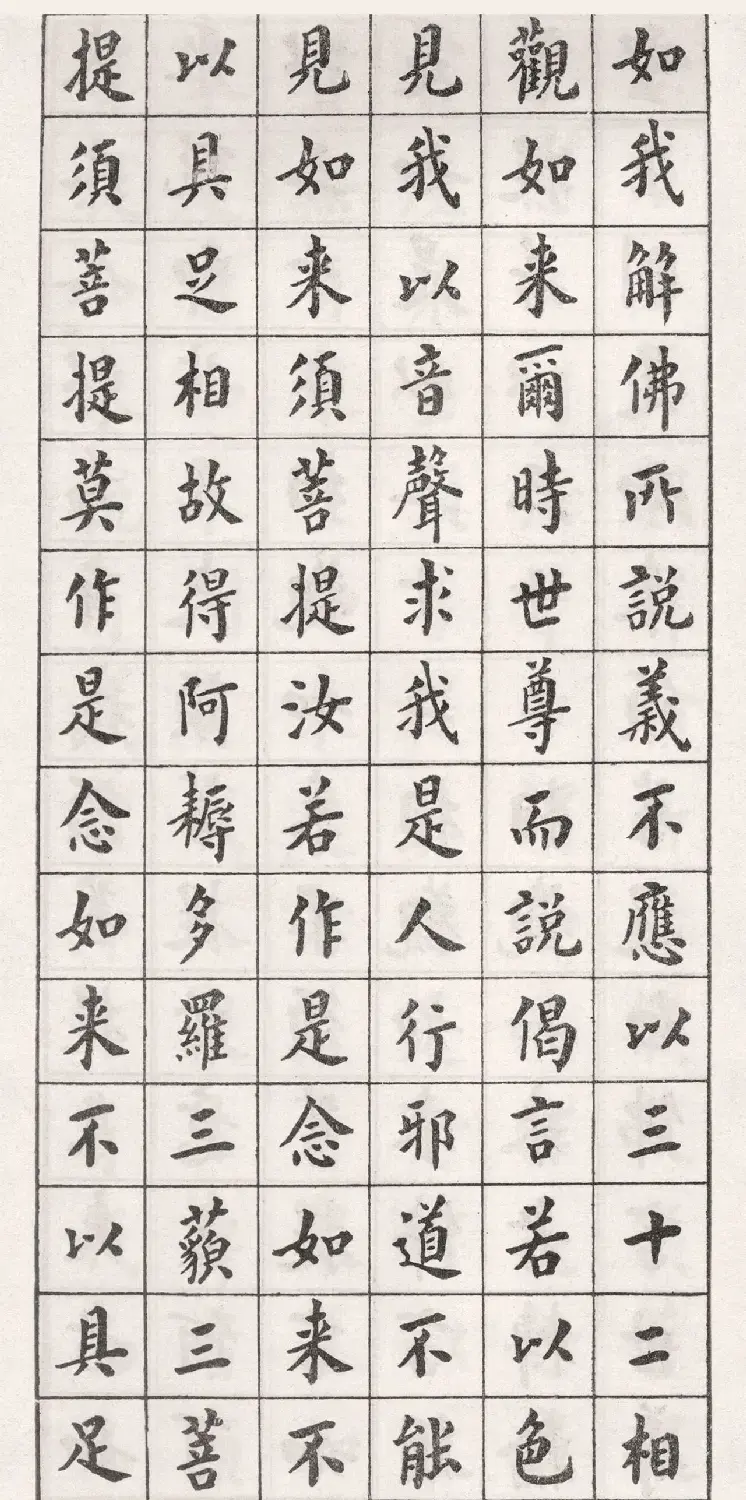 如我解佛所說義不應以三十二相
觀如来爾時世尊而說偈言若以色
見我以音聲求我是人行邪道不能
見如来須菩提汝若作是念如来不
以具足相故得阿耨多羅三藐三菩
提須菩提莫作是念如来不以具足